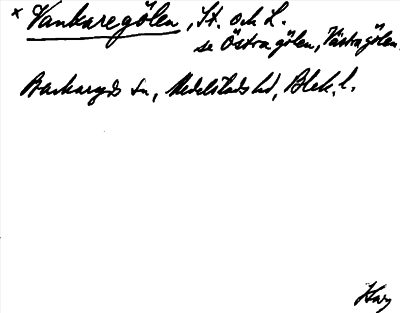 × Vankaregölen, St. och L.
se Östra gölen, Västra gölen
Backaryds sn, Medelstads hd, Blek. l.